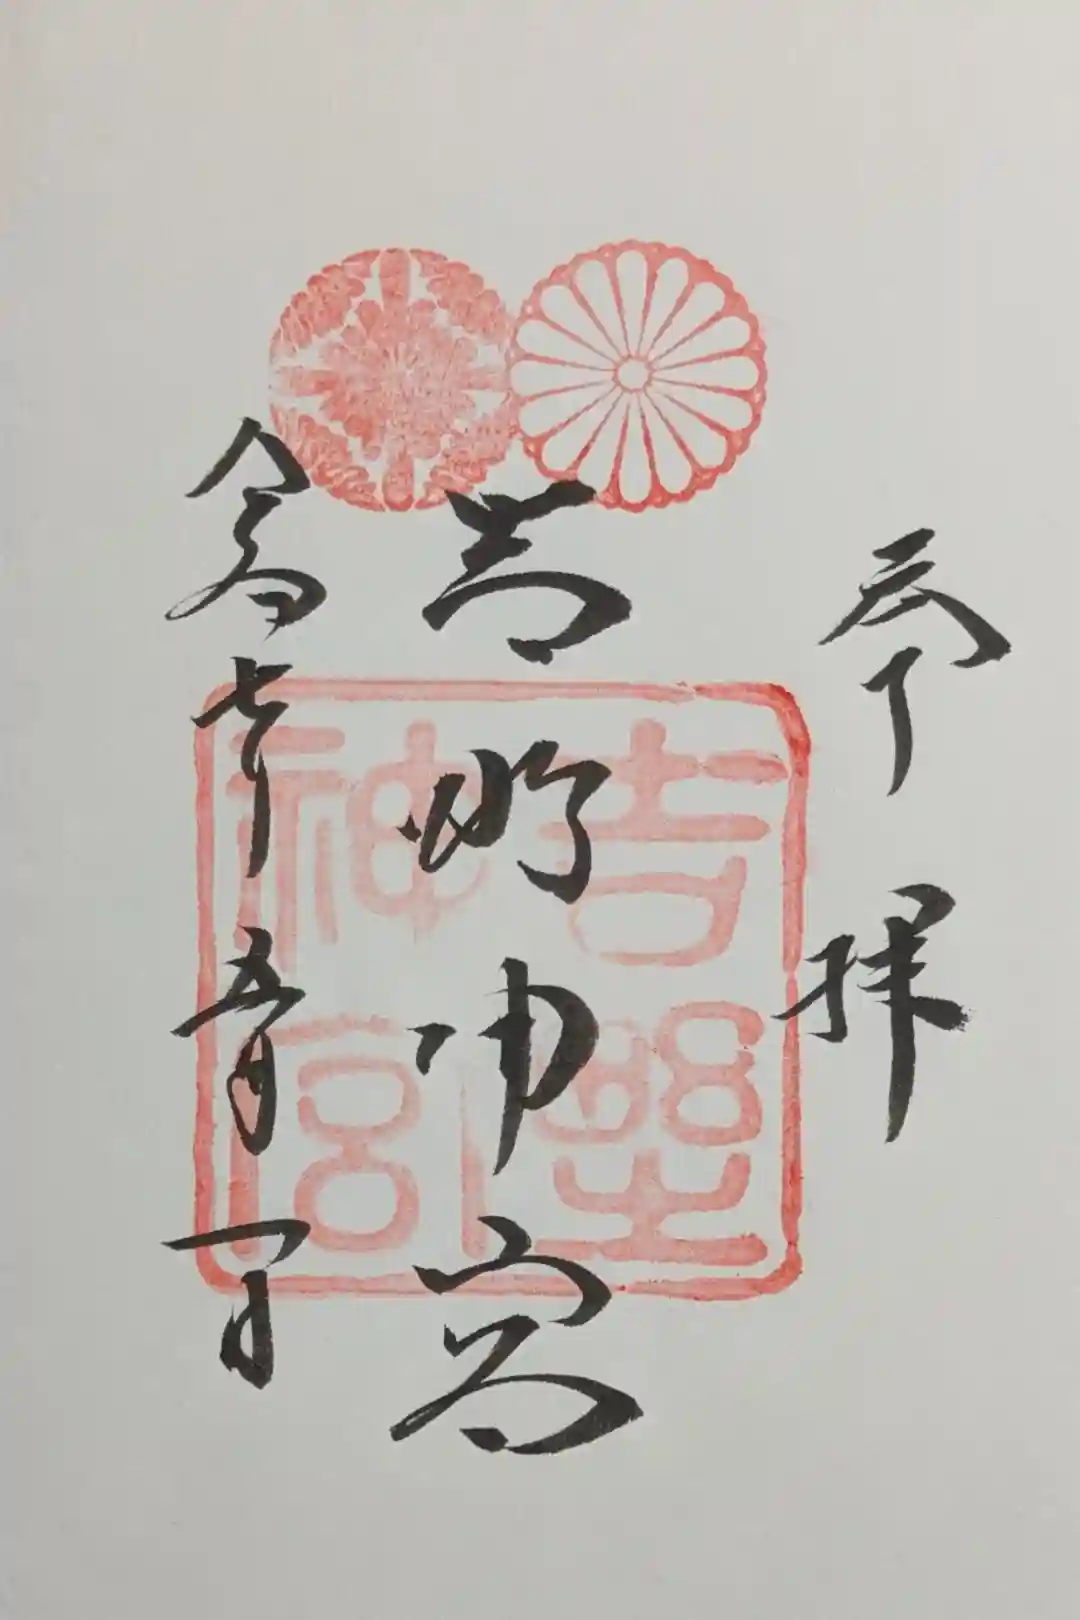 奉拝
吉野神宮
令和七年五月一日
吉野
神宮